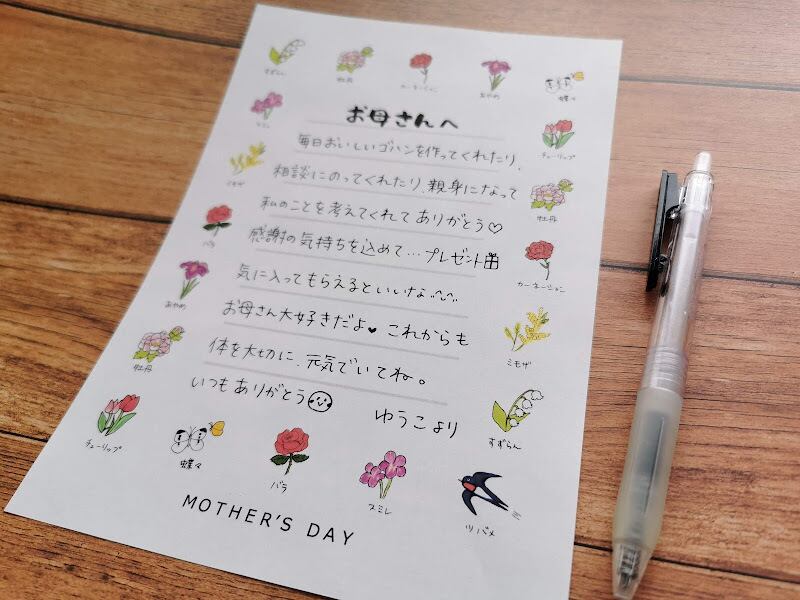 すずらん
牡丹
カーネーション
あやめ
蝶々
スミレ
チューリップ
ミモザ
牡丹
バラ
カーネーション
あやめ
ミモザ
牡丹
すずらん
チューリップ
蝶々
バラ
スミレ
ツバメ
お母さんへ
毎日おいしいゴハンを作ってくれたり、
相談にのってくれたり、親身になって
私のことを考えてくれてありがとう♡
感謝の気持ちを込めて…プレゼント
気に入ってもらえるといいな
お母さん大好きだよ♥これからも
体を大切に、元気でいてね。
いつもありがとう
ゆうこより
MOTHER'S DAY